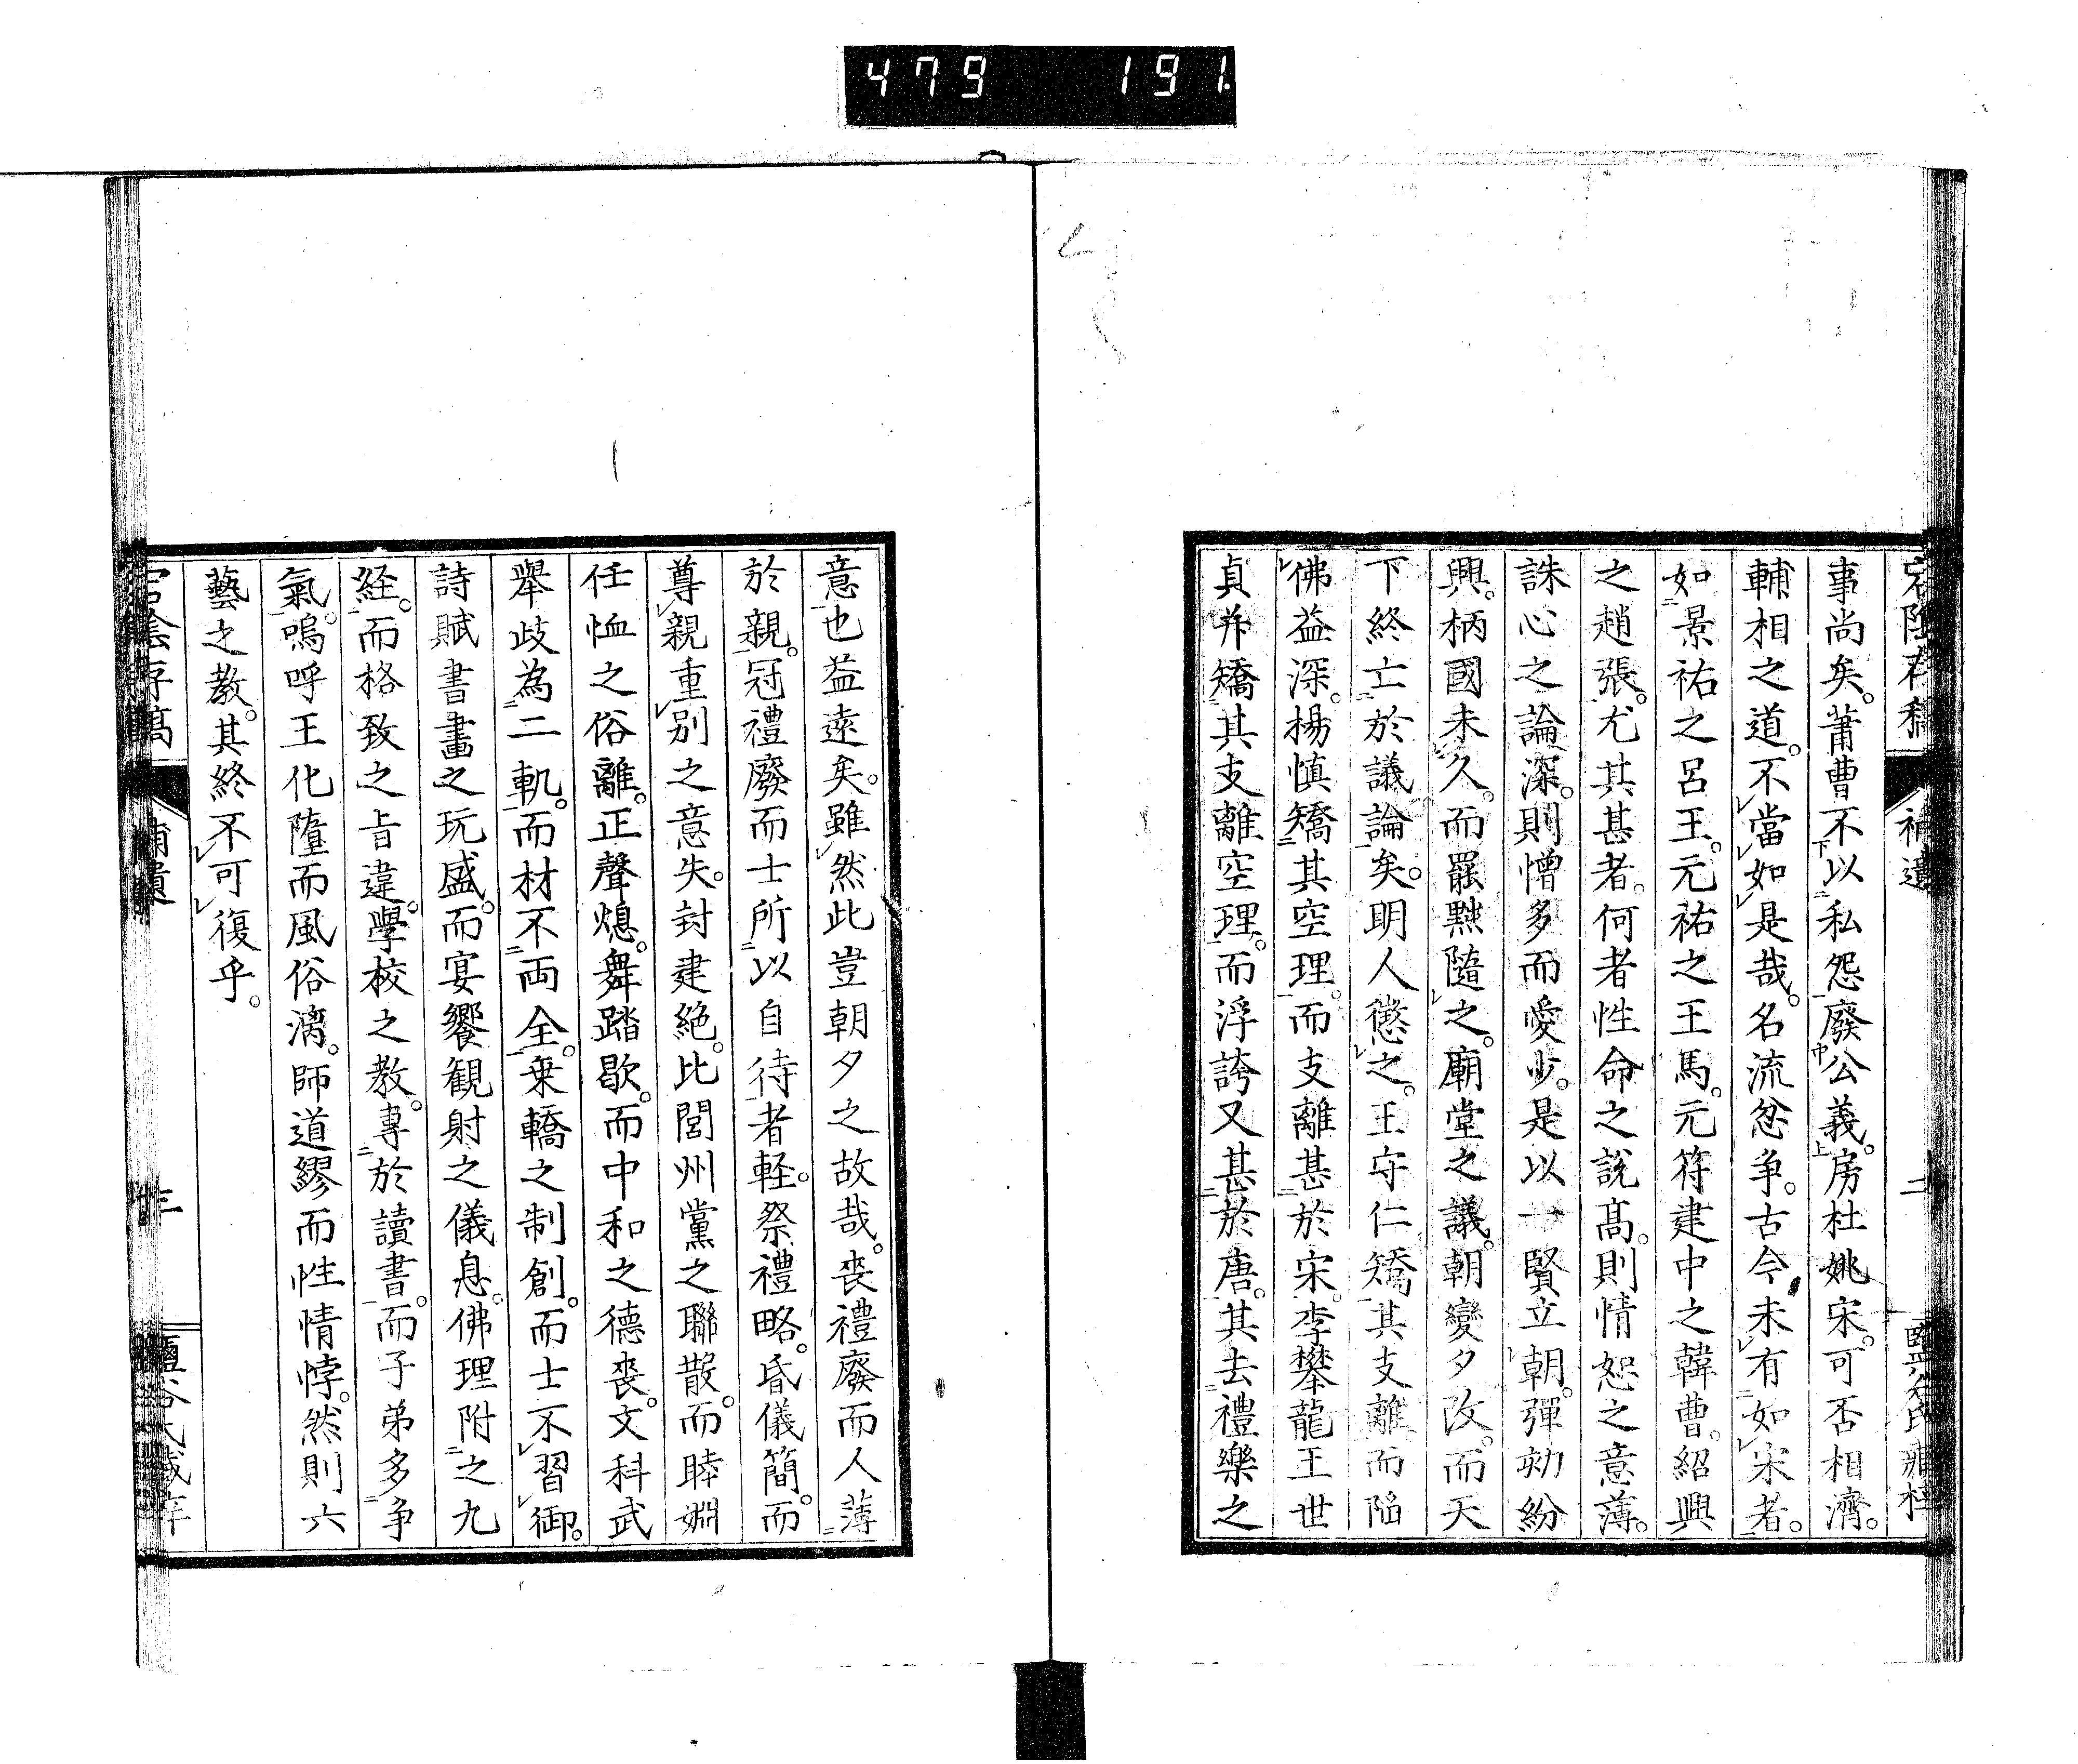 479 191
宕陰存稿 補遺 二
事尚矣。蕭曹不以私怨廢公義。房杜姚宋。可否相濟。
輔相之道。不當如是哉。名流忿争。古今未有如宋者。
如景祐之呂王。元祐之王馬。元符建中之韓曹。紹興
之趙張。尤其甚者。何者性命之說髙。則情恕之意薄。
誅心之論深。則憎多而愛少。是以一賢立朝。彈劾紛
興。柄國未久。而罷黜隨之。廟堂之議。朝變夕改。而天
下終亡於議論矣。明人懲之。王守仁矯其支離而陷
佛益深。楊慎矯其空理。而支離甚於宋。李攀龍王世
貞并矯其支離空理。而浮誇又甚於唐。其去禮樂之
意也益遠矣。雖然此豈朝夕之故哉。喪禮廢而人薄
於親。冠禮廢而士所以自待者軽。祭禮略。昏儀簡。而
尊親重别之意失。封建絶。比閭州黨之聯散。而睦婣
任恤之俗離。正聲熄。舞踏歇。而中和之德喪。文科武
舉歧為二軌。而材不両全。乗轎之制創。而士不習御。
詩賦書畫之玩盛。而宴饗観射之儀息。佛理附之九
経。而格致之旨違。學校之教。專於讀書。而子弟多争
氣。嗚呼王化墮而風俗漓。師道繆而性情悖。然則六
藝之教。其終不可復乎。
宕陰存稿 補遺 三